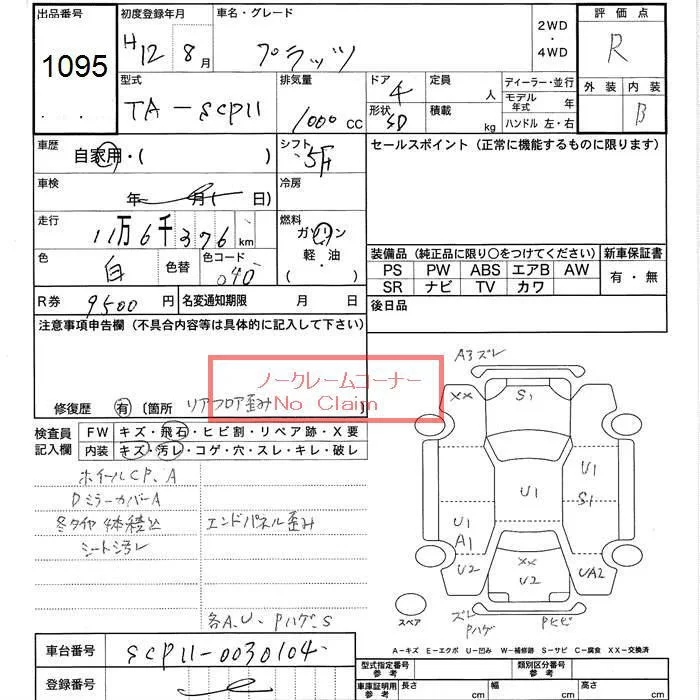 出品番号 初度登録年月 車名・グレード 2WD・4WD 評価点
1095 H12 8月 プラッツ R
型式 排気量 ドア 定員 ディーラー・並行 外装 内装
TA-SCP11 1000 CC 4 人 モデル年式 年 B
形状 SD 積載 kg ハンドル 左・右
車歴 自家用・( ) シフト 5F セールスポイント(正常に機能するものに限ります)
車検 年 月( 日) 冷房
走行 11万6千376km 燃料 ガソリン
軽・油
( )
色 白 色替 色コード 040
装備品(純正品に限り〇をつけてください) 新車保証書
PS PW ABS エアB AW 有・無
SR ナビ TV カワ
R券 9500円 名変通知期限 月 日 後日品
注意事項申告欄(不具合内容等は具体的に記入して下さい)
ノークレームコーナー
No Claim
修復歴 有 〔箇所 リアフロア歪み 〕
検査員記入欄 FW キズ・飛石・ヒビ割・リペア跡・X要
内装 キズ・汚レ・コゲ・穴・スレ・キレ・破レ
ホイールCP、A
DミラーカバーA
冬タイヤ4本積込 エンドパネル歪み
シート汚レ
各A、U、Pハゲ、S
A3 ズレ
XX S1
U1
U1 S1
U1 A1
U2 XX U2 UA2
スペア ズレ Pハゲ Pヒビ
A-キズ E-エクボ U-凹み W-補修跡 S-サビ C-腐食 XX-交換済
車台番号 SCP11-0030104 型式指定番号 参考 類別区分番号 参考
登録番号 車庫証明用 参考 長さ cm 幅 cm 高さ cm